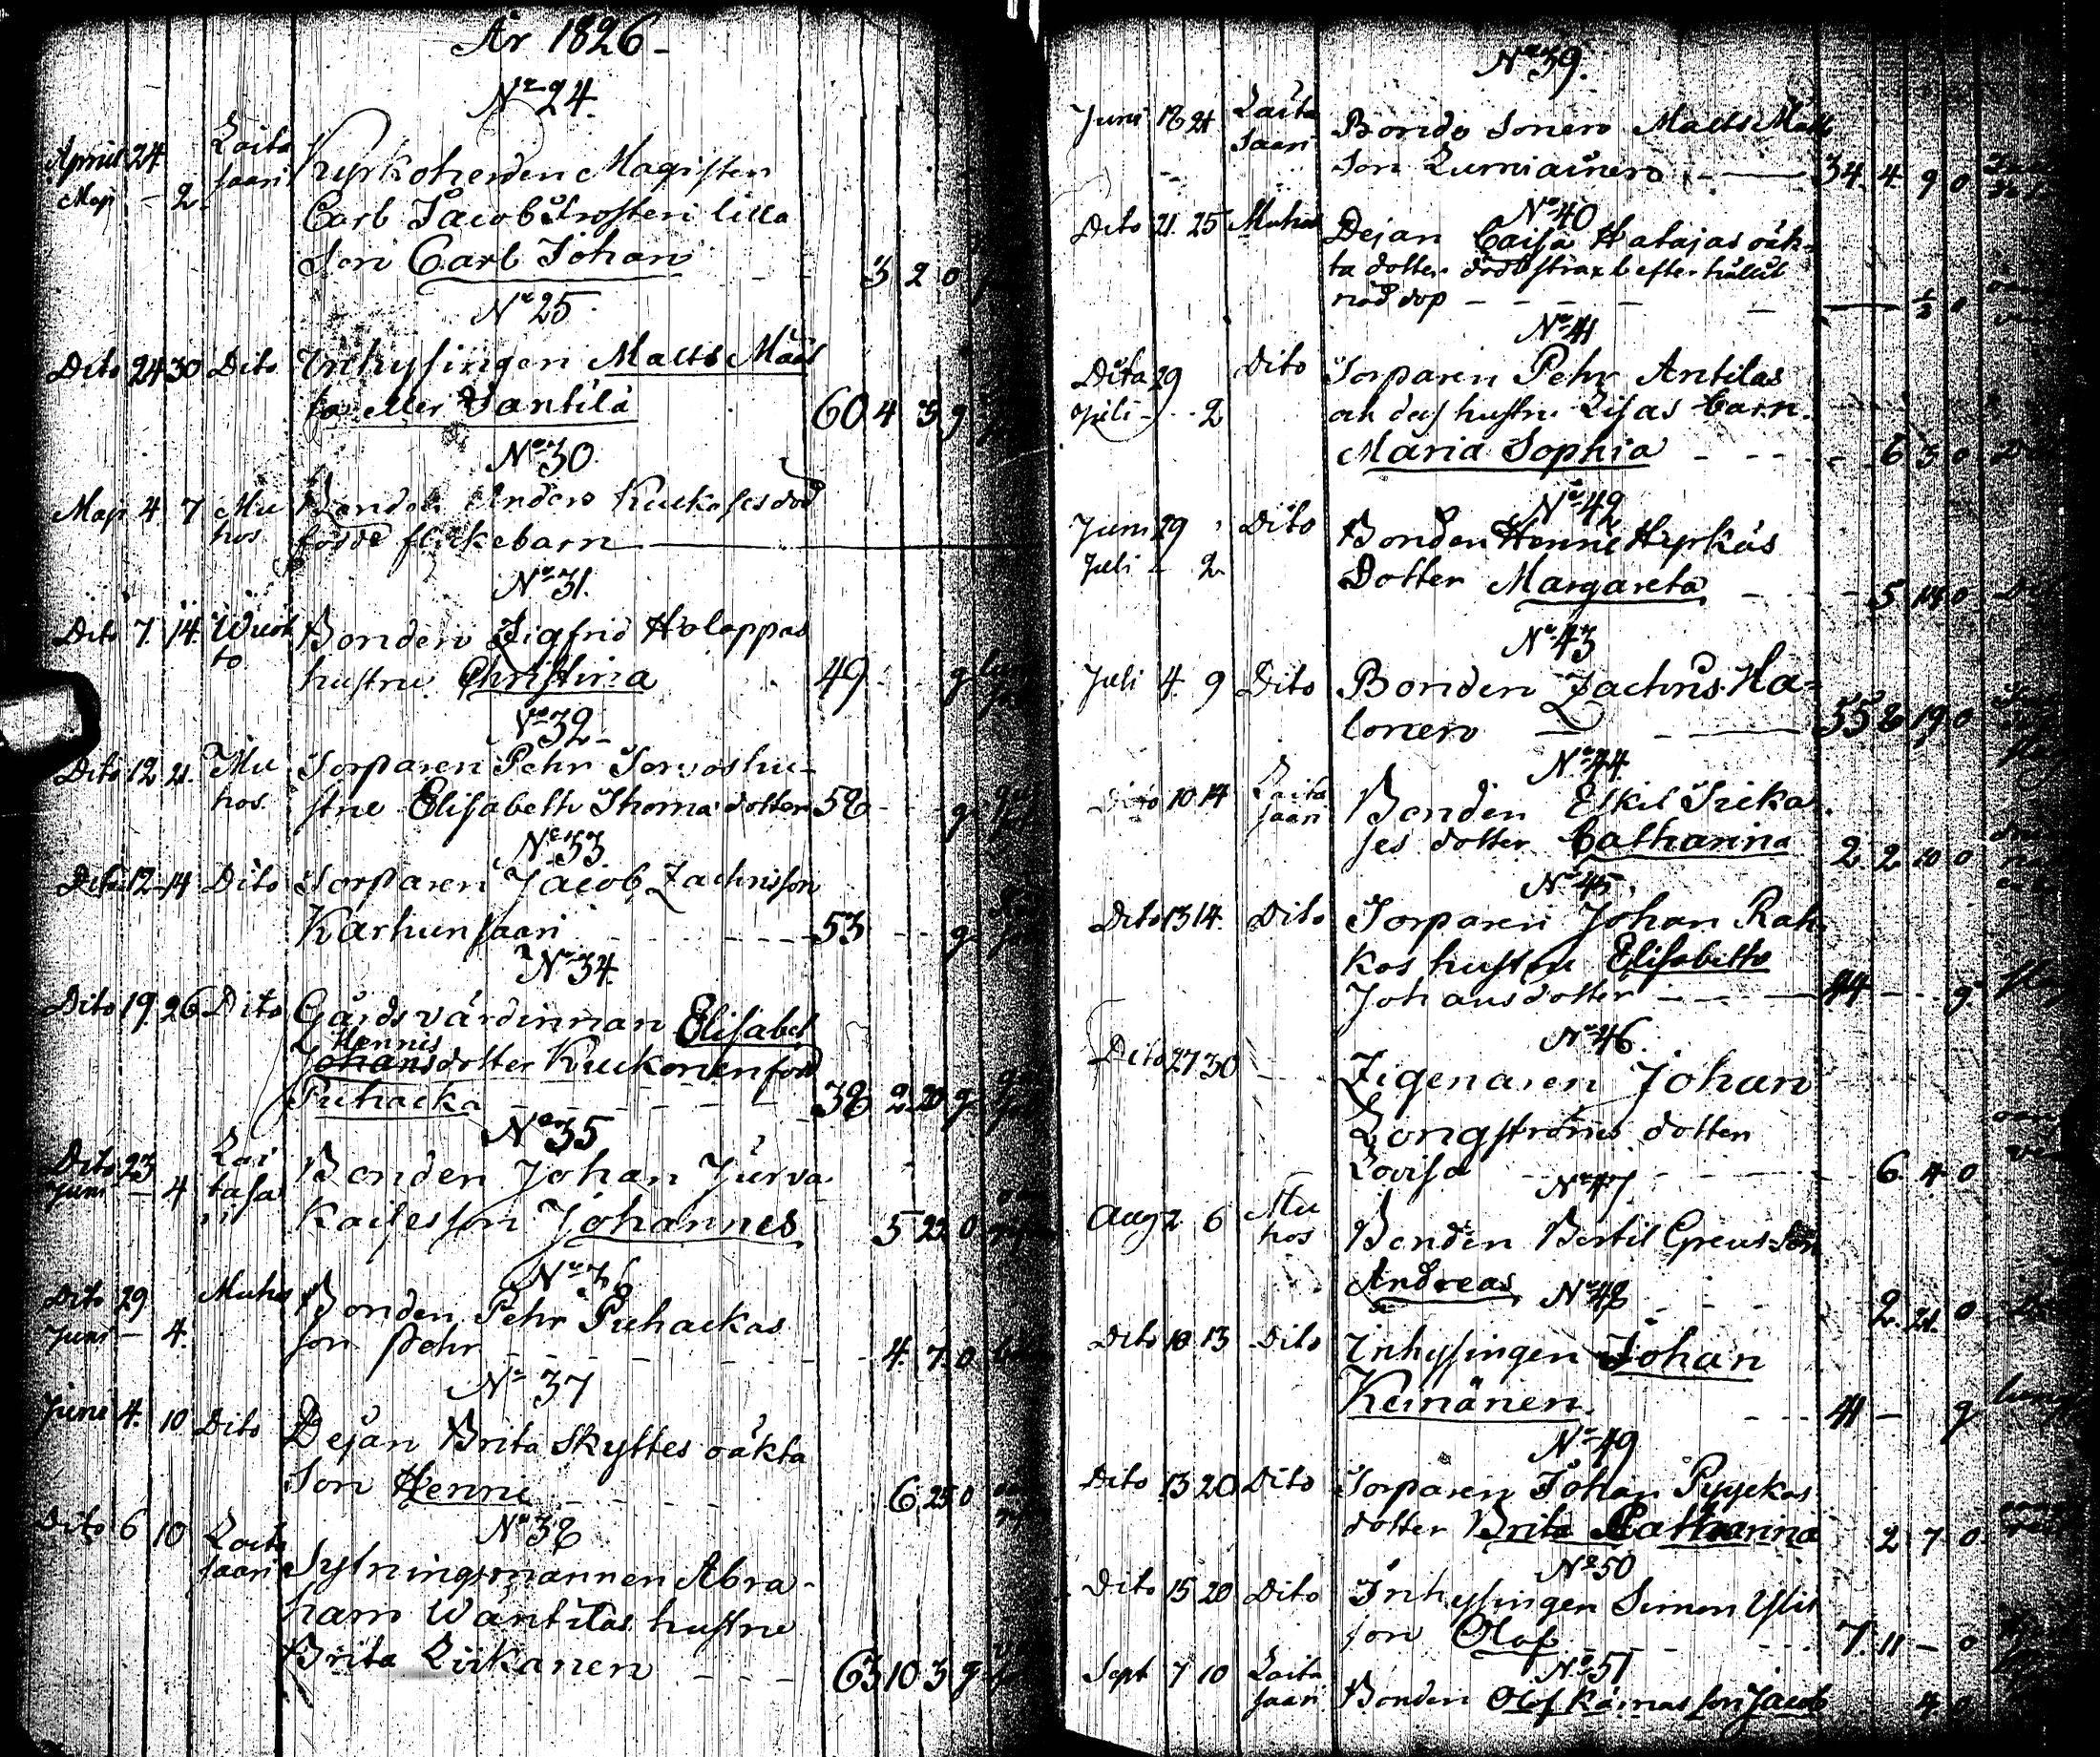 År 1826
No 24.
April 24 Laita Kyrkoherden Magisten
Maji - 2. saari Carl Jacob Frosteri lilla
Son Carl Johan - 3 2 0
No 25
Dito 24 30 Dito Inhysingen Matts
eller Wäntilä 60 4 3 g
No 30
Maji 4 7 Mu Bonden Anders Kuckoses död
hos födde flickebarn
No 31.
Dito 7. 14. Wuok Bonden Sigfrid Holappas
to hustru Christina 49. g
No 32
Dito 12 21. Mu Torparen Pehr hu-
hos stru Elisabeth Thomadotter 58 - - g
No 33.
Dito 12 14 Dito Torparen Jacob Zachrisson
Karhunsaari - - - - 53 - - g
No 34.
Dito 19. 26 Dito Gårdsvärdinnan Elisabet
Hennis
Johansdotter Kuckonen född
Puhacka - - - - - 38 2 20 g
No 35
Dito 23 Lai Bonden Johan Jurva
Juni - 4 tasa
ri kaises son Johannes 5 22 0
No 36
Dito 29 Muhos Bonden Pehr Puhackas
Juni - 4. son Pehr - - - - - 4. 7. 0
No 37
Juni 4. 10 Dito Dejan Brita Skyttes oäkta
Son Henric - - - - 6 25 0
No 38
Dito 6 10 Laita
saari Sytningsmannen Abra-
ham Wäntilas hustru
Brita Liikanen - - - 63 10 3 g
No 39.
Juni 18 21 Laita Bonde Sonen Matts Matts
saari Son Lumiainen - 34. 4. 9 0
No 40
Dito 21. 25 Muhos Dejan Caisa Hatajas oäk-
ta dotter död straxt efter hållit
nöd dop - - - - 1/2 0
No 41
Dito 29 Dito Torparen Pehr Antilas
Juli - 2 och dess hustru Lisas barn
Maria Sophia - - - 6 3 0
No 42
Juni 29 Dito Bonden Henric Hyrkäs
Juli - 2 Dotter Margareta - - - 5 14 0
No 43
Juli 4. 9 Dito Bonden Zachris Ha-
lonen - - - 55 8 19 0
No 44
Dito 10 14 Laita Bonden Eskil
saari ses dotter Catharina 2 2 10 0
No 45.
Dito 13 14. Dito Torparen Johan Rah-
kos hustru Elisabeth
Johansdotter - - - 44 - - g
No 46.
Dito 27 30 Zigenaren Johan
Longströms dotter
Lovisa - - - - 6. 4. 0
No 47
Aug 2 6 Mu
hos Bonden Bertil Greus Son
Andreas - - - 2. 21. 0
No 48
Dito 10 13 Dito Inhysingen Johan
Keinänen. - - - 41 - g
No 49
Dito 13 20 Dito Torparen Johan Pyyckas
dotter Brita Catharina 2 7 0
No 50
Dito 15 20 Dito Inhysingen Simon
son Olof - - - 7. 11 - 0
No 51
Sept 7 10 Laita
saari Bonden Olof Kärnas son Jacob 4 0